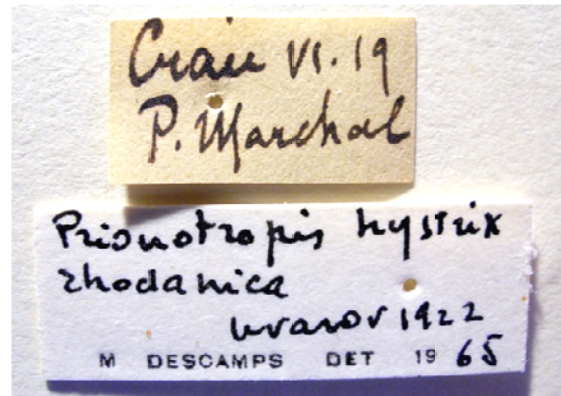 Crau VI.19
P. Marchal
Prionotropis hystrix
rhodanica
Uvarov 1922
M DESCAMPS DET 19 65